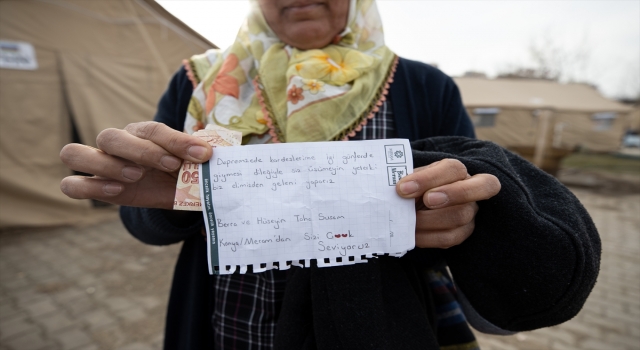 Depremzede kardeşlerime iyi günlerde
giymesi dileğiyle siz üşümeyin yeter ki
biz elimizden geleni yaparız
Berra ve Hüseyin Taha Susam
Konya/Meram'dan Sizi Çook
Seviyoruz
50